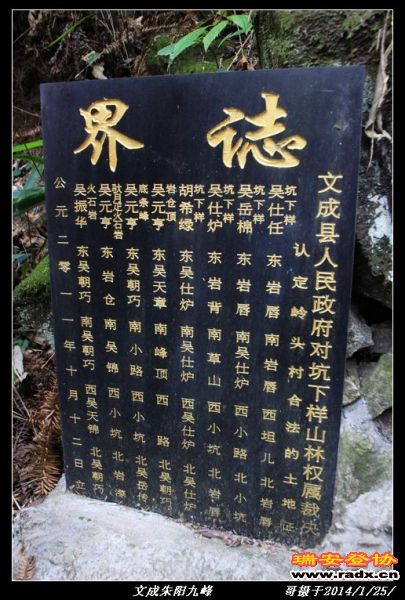 誌界
文成县人民政府对坑下样山林权属裁决
认定岭头村合法的土地证
坑下样 吴仕任 东岩唇 南岩唇 西坦儿 北岩唇
坑下样 吴岳棉 东岩唇 南吴仕炉 西小路 北小坑
坑下样 吴仕炉 东岩背 南草山 西小坑 北岩唇
坑下样 胡希绿 东吴仕炉 南吴仕炉 西吴仕炉 北吴仕炉
岩仓顶 吴元亨 东吴天章 南峰顶 西路 北吴朝巧
底条峰 吴元亨 东吴朝巧 南小路 西小坑 北吴岳传
火石岩 吴元亨 东岩仓 南吴锦 西小坑 北岩漈
火石岩 吴振华 东吴朝巧 南吴朝巧 西吴天锦 北吴朝巧
公元二零一一年十月十二日立
瑞安登协
www.radx.cn
文成朱阳九峰
哥摄于2014/1/25/